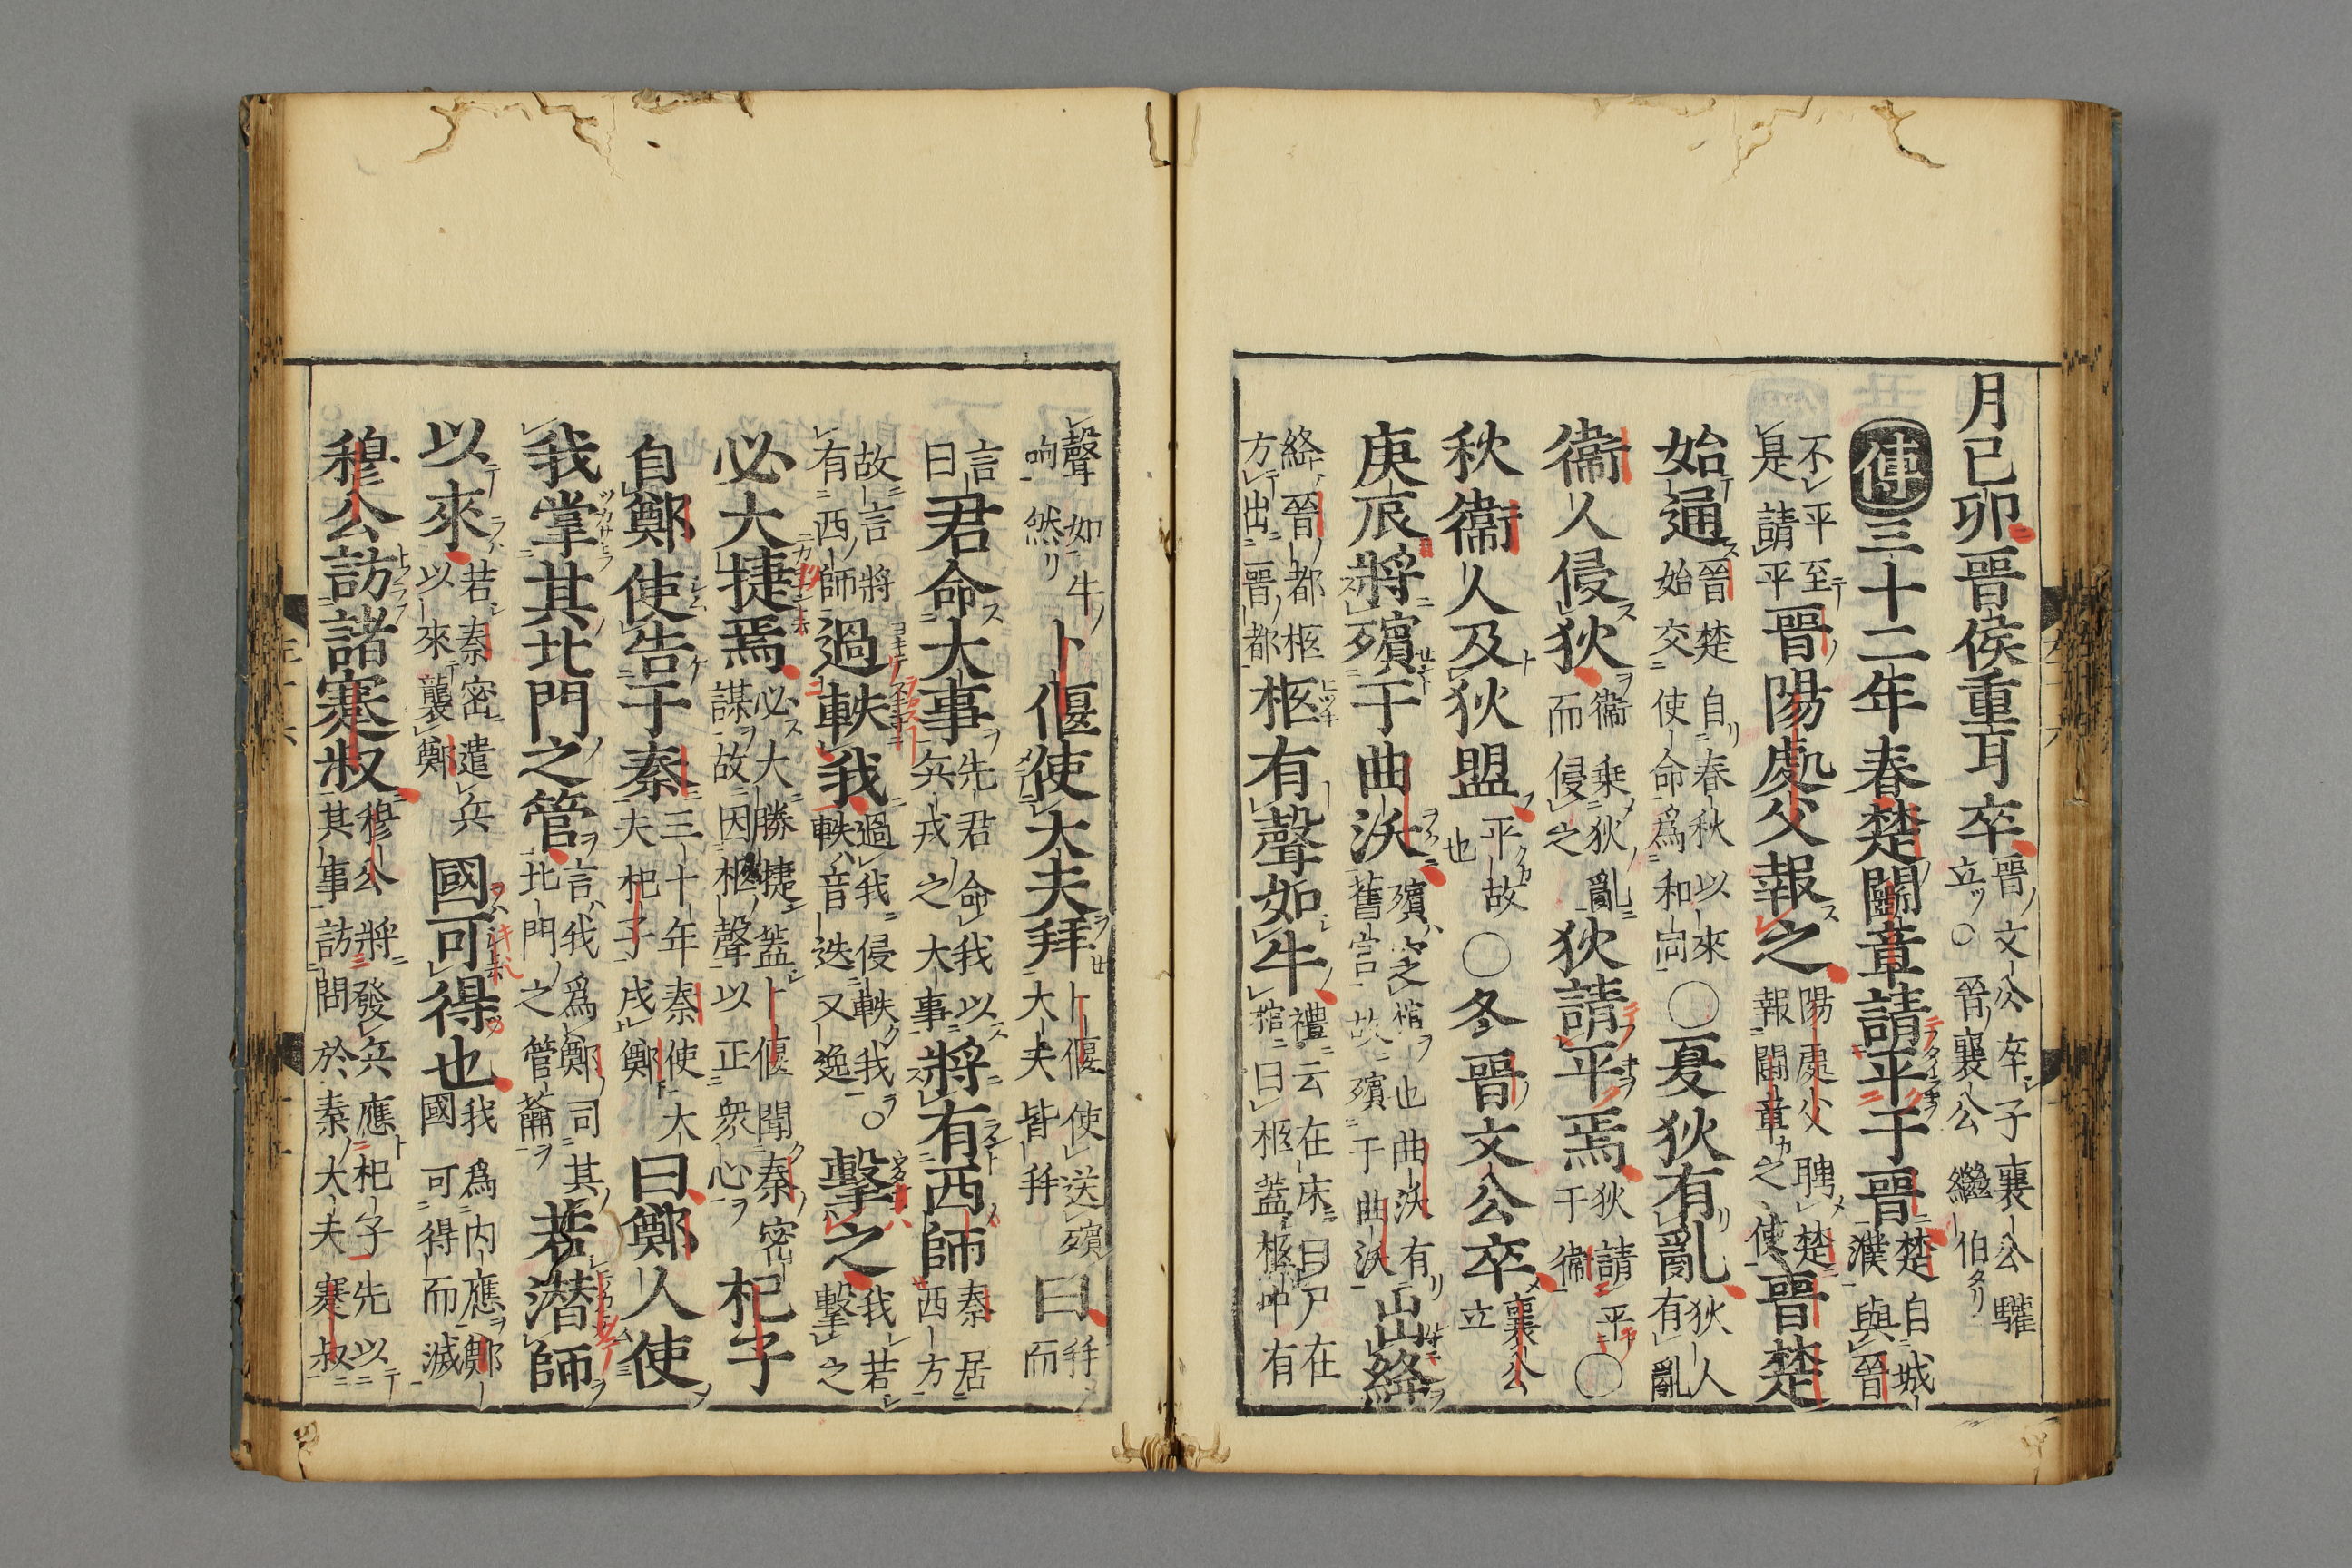 月己卯晉侯重耳卒晉文公卒子襄公驩立○晉襄公繼伯
傳三十二年春楚鬬章請平于晉楚自城濮與晉
不平至是請平晉陽處父報之陽處父聘楚報鬬章之使晉楚
始通晉楚自春秋以來始交使命爲和同○夏狄有亂狄人有亂
衞人侵狄衞乗狄亂而侵之狄請平焉狄請平于衞○
秋衞人及狄盟平故也○冬晉文公卒襄公立
庚辰將殯于曲沃殯窆棺也曲沃有舊宮故殯于曲沃出絳
絳晉都柩方出晉都柩有聲如牛禮云在床曰尸在棺曰柩蓋柩中有
聲如牛呴然卜偃使大夫拜卜偃使送殯大夫皆拜曰拜而
言曰君命大事先君命我以兵戎之大事將有西師秦居西方
故言將有西師過軼我過我侵軼我軼音迭又逸○擊之我若擊之
必大捷焉必大勝捷蓋卜偃聞秦密謀故因柩聲以正衆心杞子
自鄭使告于秦三十年秦使大夫杞子戍鄭曰鄭人使
我掌其北門之管言我爲鄭司其北門之管籥若潛師
以來若秦密遣兵以來襲鄭國可得也我爲内應鄭國可得而滅
穆公訪諸蹇叔穆公將發兵應杞子先以其事訪問於秦大夫蹇叔